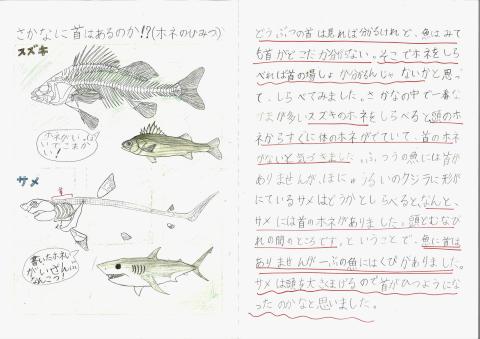 さかなに首はあるのか!?(ホネのひみつ)
スズキ
ホネがいっぱいでこまかい!
サメ
首
書いたホネ
どうぶつの首は見れば分かるけれど、魚はみて
も首がどこだか分からない。そこでホネをしら
べれば首の場しょが分かるんじゃないかと思っ
て、しらべてみました。さかなの中で一番な
かまが多いスズキのホネをしらべると頭のホ
ネからすぐに体のホネがでていて、首のホネ
がないと気づきました。ふつうの魚には首が
ありませんが、ほにゅうるいのクジラに形が
にているサメはどうかとしらべると、なんと、
サメには首のホネがありました。頭とむなび
れの間のところです。ということで、魚に首は
ありませんが一ぶの魚にはくびがありました。
サメは頭を大きくまげるので首がひつようにな
ったのかなと思いました。